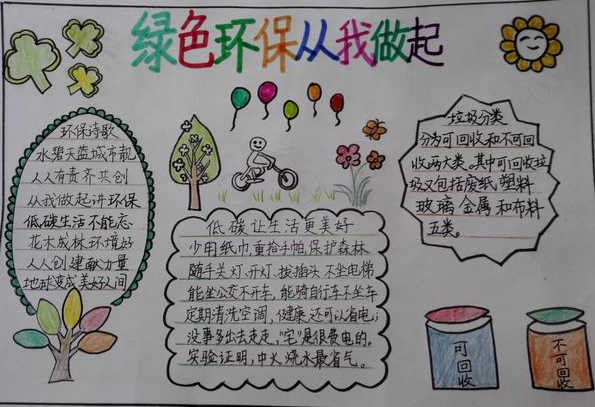 绿色环保从我做起
环保诗歌
水碧天蓝城市靓
人人有责齐共创
从我做起讲环保
低碳生活不能忘
花木成林环境好
人人创建献力量
地球变成美好人间
低碳让生活更美好
少用纸巾重拾手帕,保护森林
随手关灯.开灯.拔插头不坐电梯
能坐公交不开车,能骑自行车不坐车
定期清洗空调,健康还可以省电;
没事多出去走走,“宅”是很费电的,
实验证明,中火烧水最省气。
垃圾分类
分为可回收和不可回
收两大类。其中可回收垃
圾又包括废纸,塑料
玻璃 金属 和布料
五类。
可回收
不可回收